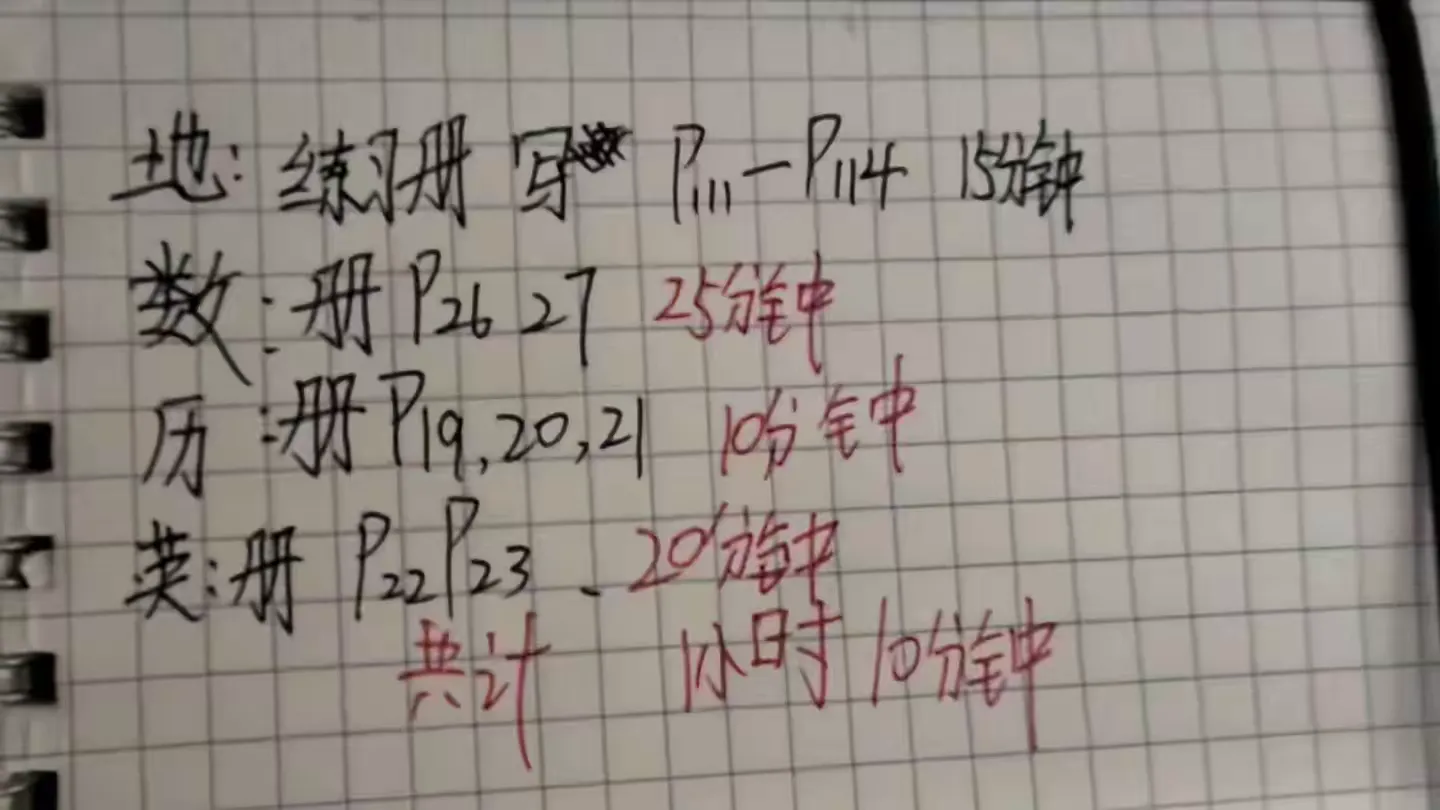 地：练习册 写 P111-P114 15分钟
数：册P26 27 25分钟
历：册P19,20,21 10分钟
英：册 P22P23、20分钟
共计 1小时10分钟